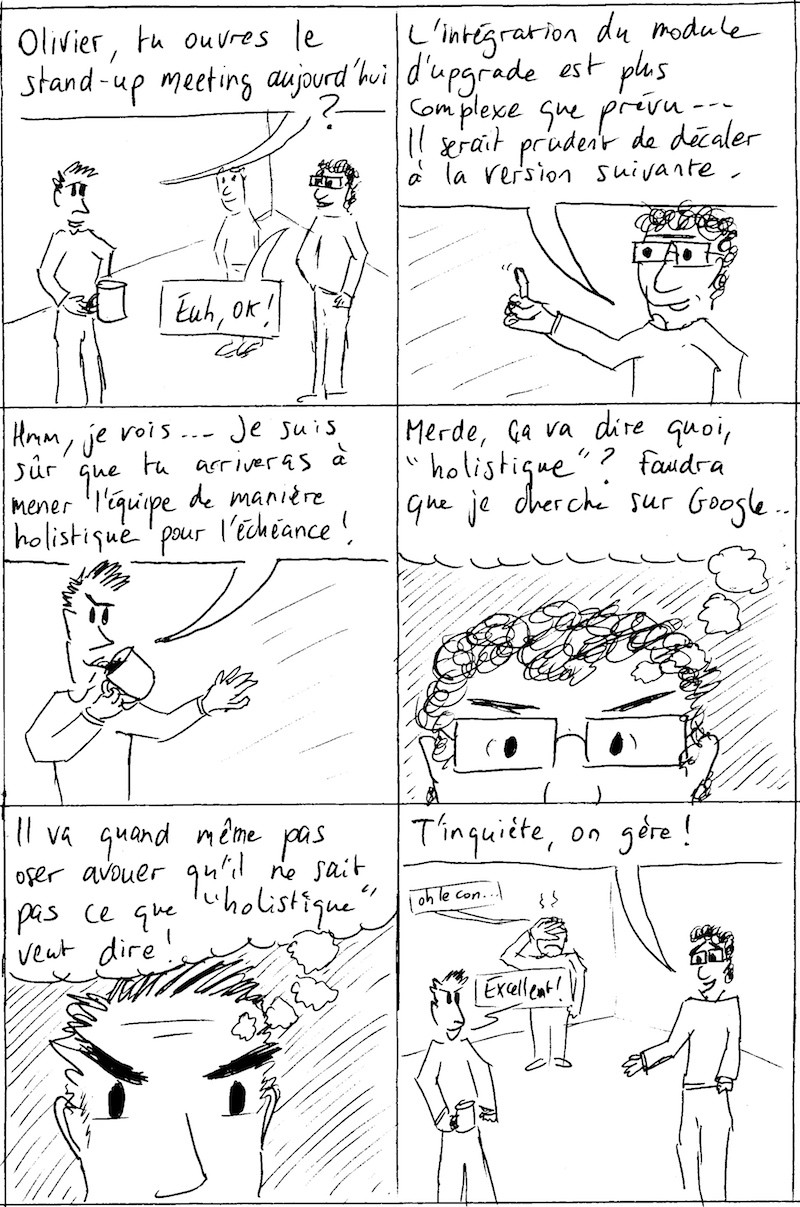 Olivier, tu ouvres le
stand-up meeting aujourd'hui
?
Euh, OK!
L'intégration du module
d'upgrade est plus
complexe que prévu ---
Il serait prudent de décaler
à la version suivante.
Hmm, je vois --- Je suis
sûr que tu arriveras à
mener l'équipe de manière
holistique pour l'échéance!
Merde, ça va dire quoi,
"holistique"? Faudra
que je cherche sur Google..
Il va quand même pas
oser avouer qu'il ne sait
pas ce que "holistique"
veut dire!
T'inquiéte, on gère!
oh le con...
Excellent!